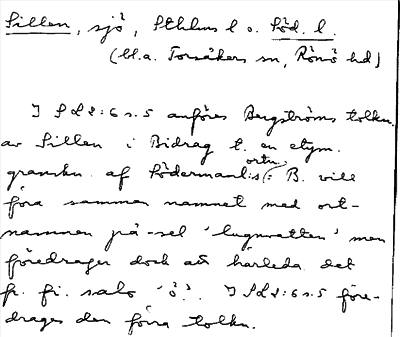 Sillen, sjö, Sthlms l o. Söd. l.
(bl.a. Torsåkers sn, Rönö hd)
I SL 2:6 s. 5 anföres Bergströms tolkn.
av Sillen i Bidrag t. en etym.
granskn. af Södermanl:s ortn.: B. vill
föra samman namnet med ort-
namnen på -sel 'lugnvatten' men
föredrager dock att härleda det
fr. fi. salo 'ö'. I SL 2:6 s. 5 före-
drages den förra tolkn.